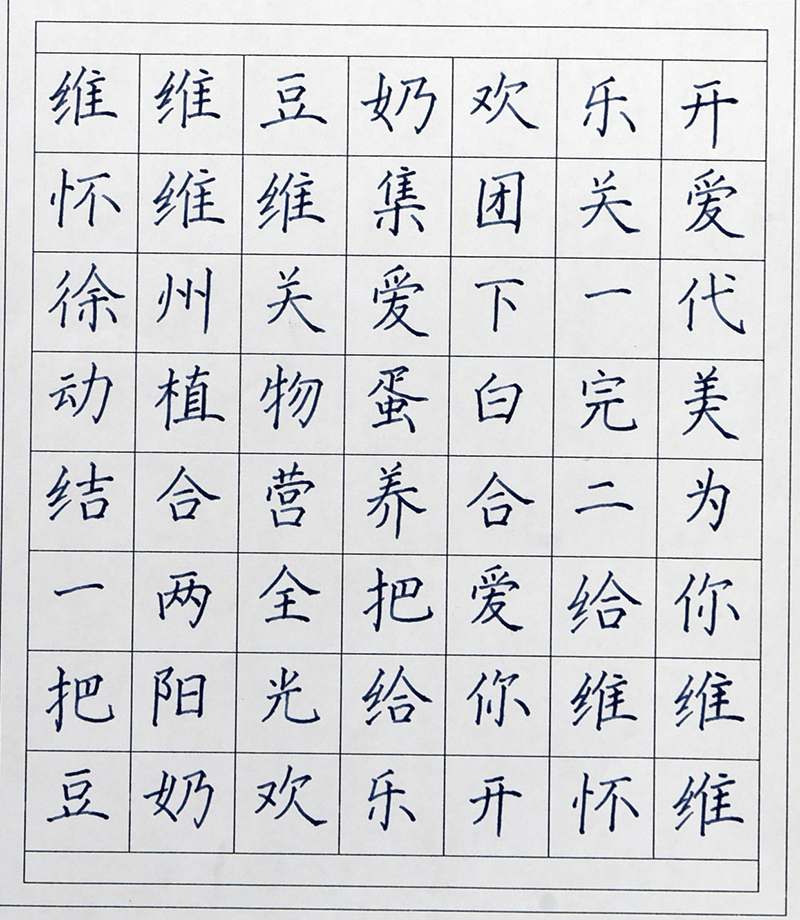 维维豆奶欢乐开
怀维维集团关爱
徐州关爱下一代
动植物蛋白完美
结合营养合二为
一两全把爱给你
把阳光给你维维
豆奶欢乐开怀维